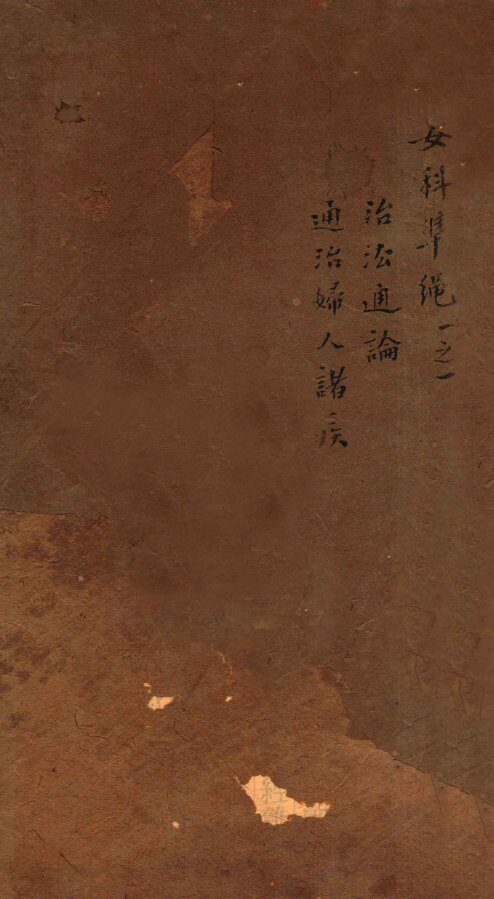 女科準繩一之一
治法通論
通治婦人諸疾